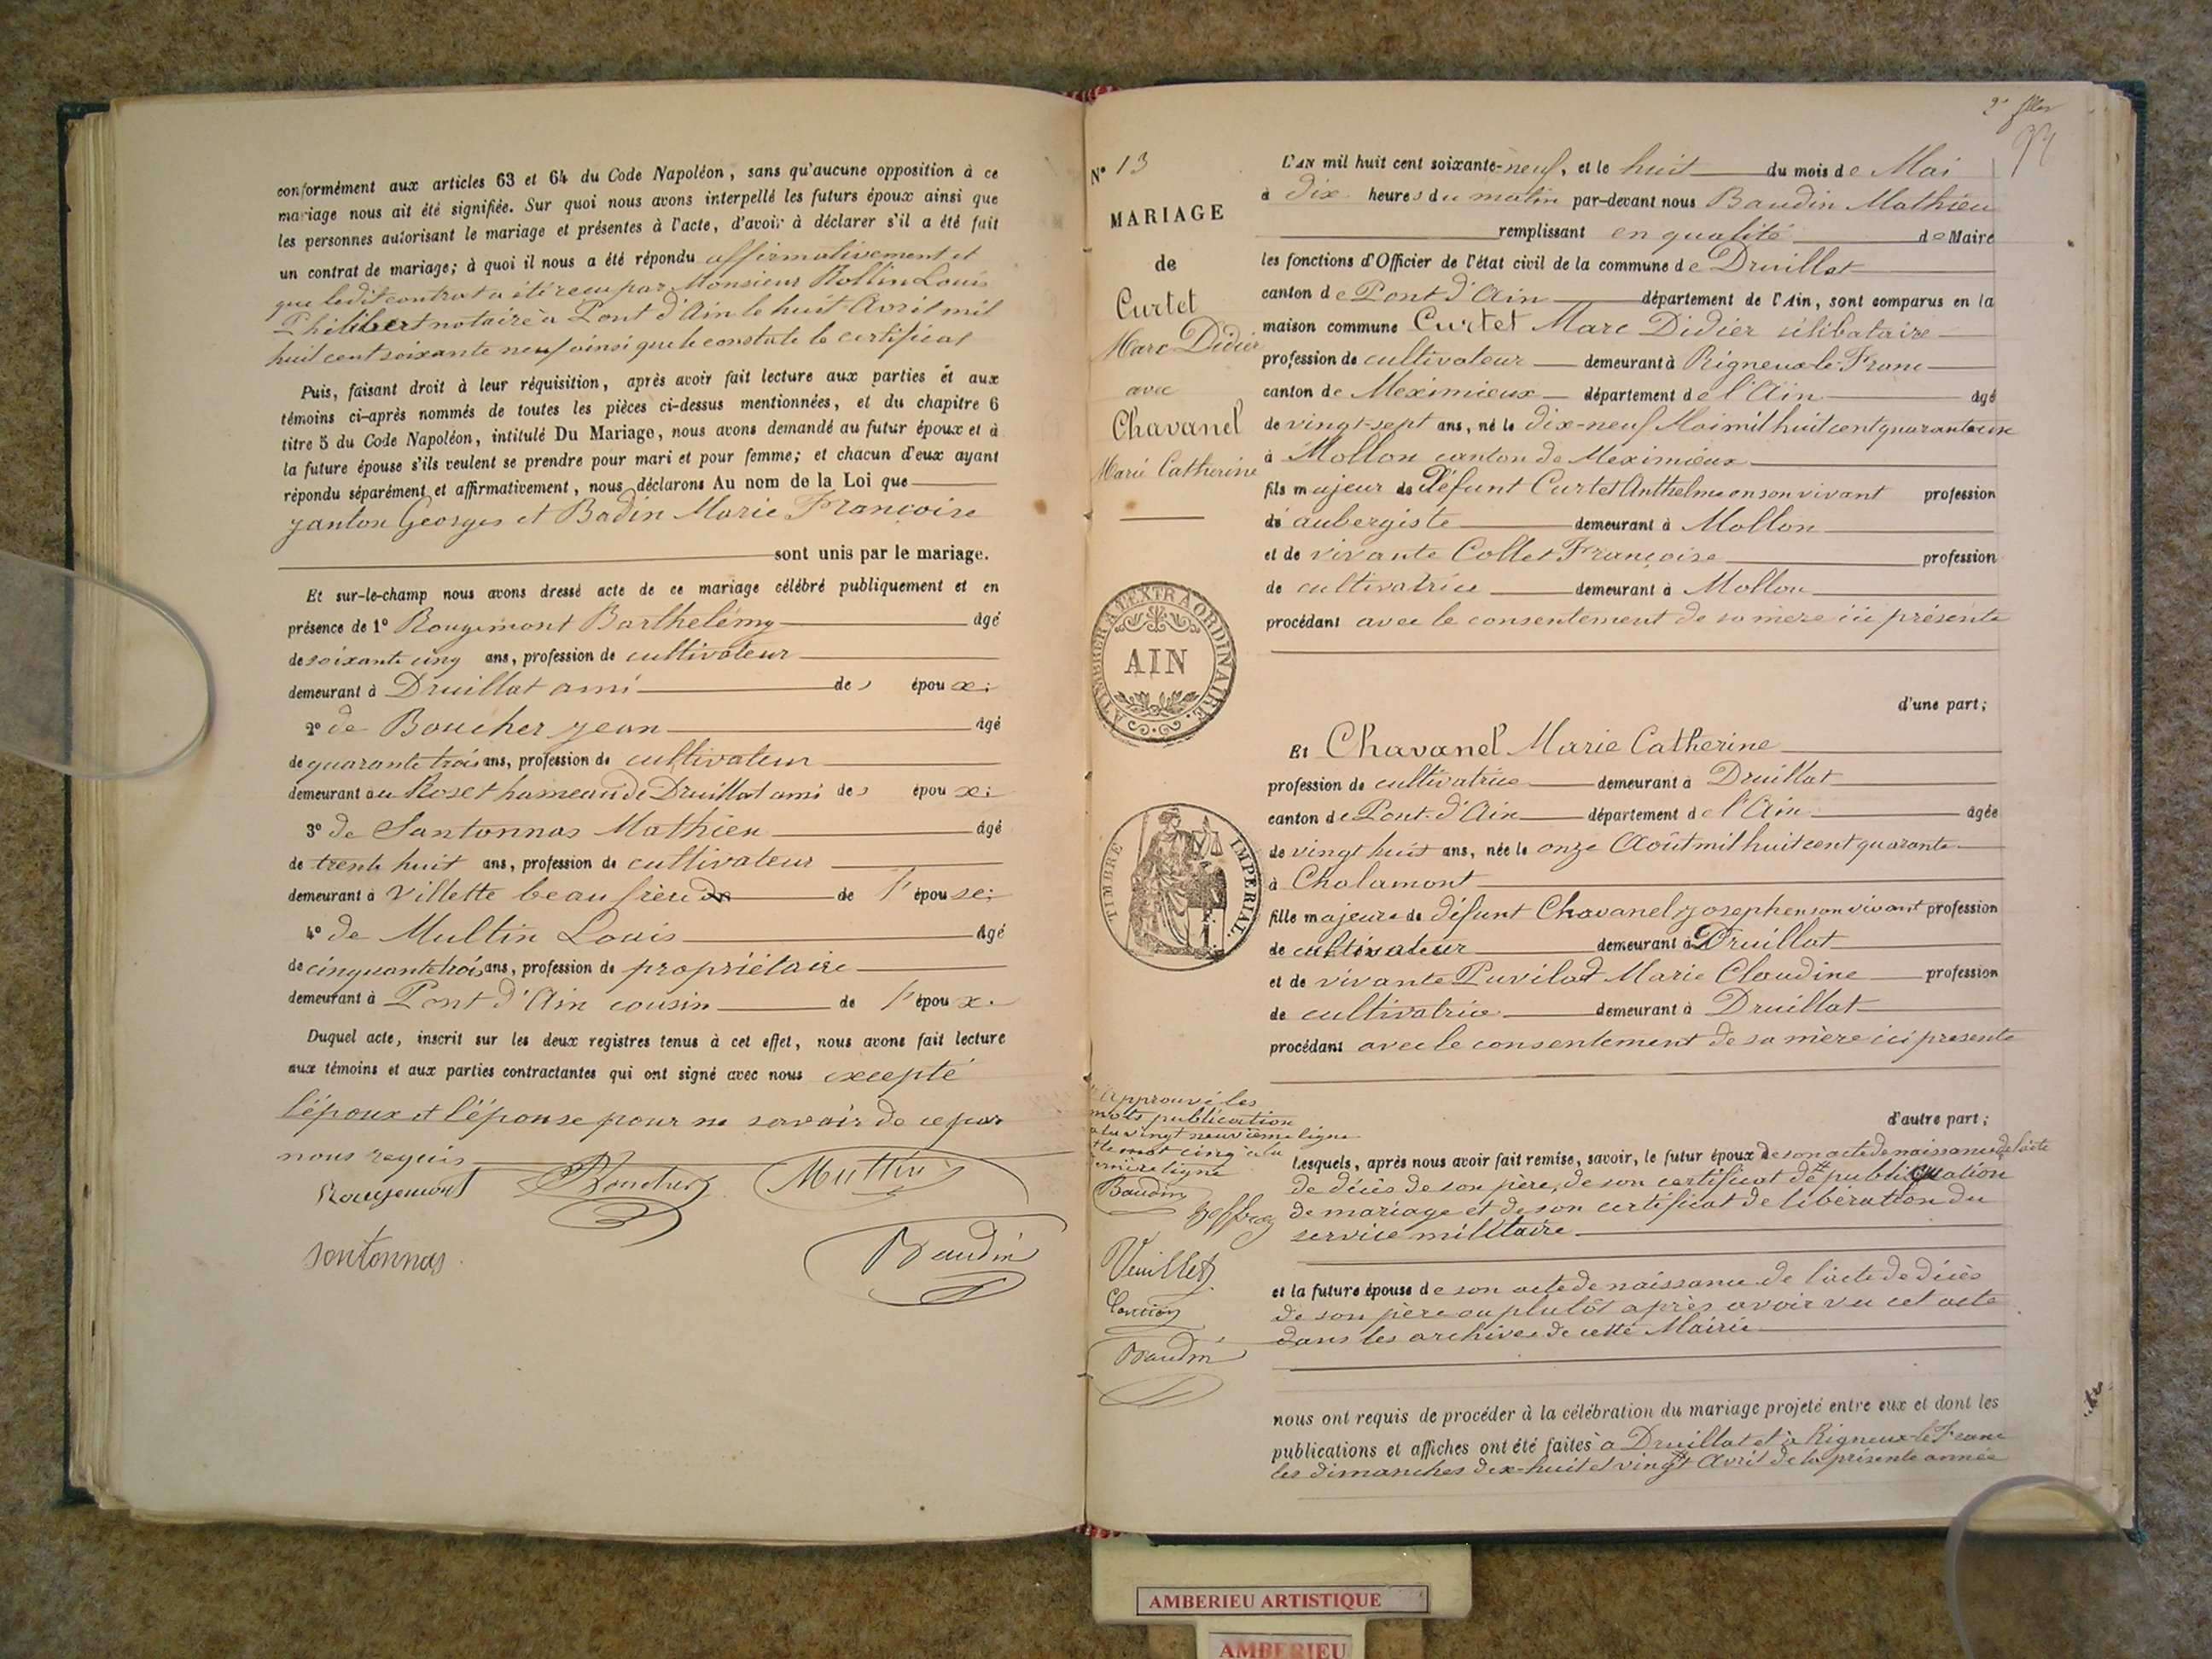 conformément aux articles 63 et 64 du Code Napoléon, sans qu'aucune opposition à ce
mariage nous ait été signifiée. Sur quoi nous avons interpellé les futurs époux ainsi que
les personnes autorisant le mariage et présentes à l'acte, d'avoir à déclarer s'il a été fait
un contrat de mariage; à quoi il nous a été répondu affirmativement et
que ledit contrat a été reçu par Monsieur Rollin Louis
Philibert notaire à Pont d'Ain le huit Avril mil
huit cent soixante neuf ainsi que le constate le certificat
Puis, faisant droit à leur réquisition, après avoir fait lecture aux parties et aux
témoins ci-après nommés de toutes les pièces ci-dessus mentionnées, et du chapitre 6
titre 5 du Code Napoléon, intitulé Du Mariage, nous avons demandé au futur époux et à
la future épouse s'ils veulent se prendre pour mari et pour femme; et chacun d'eux ayant
répondu séparément et affirmativement, nous déclarons Au nom de la Loi que
Janton Georges et Badin Marie Françoise
sont unis par le mariage.
Et sur-le-champ nous avons dressé acte de ce mariage célébré publiquement et en
présence de 1° Rougemont Barthelémy âgé
de soixante cinq ans, profession de cultivateur
demeurant à Druillat ami des époux;
2° de Boucher Jean âgé
de quarante trois ans, profession de cultivateur
demeurant au Roset hameau de Druillat ami des époux;
3° de Santonnas Mathieu âgé
de trente huit ans, profession de cultivateur
demeurant à Villette beau frère de l'épouse;
4° de Multin Louis âgé
de cinquante trois ans, profession de propriétaire
demeurant à Pont d'Ain cousin de l'époux.
Duquel acte, inscrit sur les deux registres tenus à cet effet, nous avons fait lecture
aux témoins et aux parties contractantes qui ont signé avec nous excepté
l'époux et l'épouse pour ne savoir de ce par
nous requis
Rougemont Boucher Multin
Santonnas
Baudin
N° 13
MARIAGE
de
Curtet
Marc Didier
avec
Chavanel
Marie Catherine
A TIMBRER A L'EXTRAORDINAIRE.
AIN
TIMBRE IMPERIAL.
Approuvé les
mots publication
à la vingt neuvième ligne
et le mot cinq à la
ligne
Baudin
Veuillet
Baudin
L'AN mil huit cent soixante-neuf, et le huit du mois de Mai
à dix heures du matin par-devant nous Baudin Mathieu
remplissant en qualité de Maire
les fonctions d'Officier de l'état civil de la commune de Druillat
canton de Pont d'Ain département de l'Ain, sont comparus en la
maison commune Curtet Marc Didier célibataire
profession de cultivateur demeurant à Rigneux-le-Franc
canton de Meximieux département de l'Ain âgé
de vingt-sept ans, né le dix-neuf Mai mil huit cent quarante un
à Mollon canton de Meximieux
fils majeur de défunt Curtet Anthelme en son vivant profession
de aubergiste demeurant à Mollon
et de vivante Collet Françoise profession
de cultivatrice demeurant à Mollon
procédant avec le consentement de sa mère ici présente
d'une part;
Et Chavanel Marie Catherine
profession de cultivatrice demeurant à Druillat
canton de Pont-d'Ain département de l'Ain âgée
de vingt huit ans, née le onze Août mil huit cent quarante
à Chalamont
fille majeure de défunt Chavanel Joseph en son vivant profession
de cultivateur demeurant à Druillat
et de vivante Puvilad Marie Claudine profession
de cultivatrice demeurant à Druillat
procédant avec le consentement de sa mère ici présente
d'autre part;
Lesquels, après nous avoir fait remise, savoir, le futur époux de son acte de naissance de l'acte
de décès de son père, de son certificat de publication
de mariage et de son certificat de libération du
service militaire
et la future épouse de son acte de naissance de l'acte de décès
de son père ou plutôt après avoir vu cet acte
dans les archives de cette Mairie
nous ont requis de procéder à la célébration du mariage projeté entre eux et dont les
publications et affiches ont été faites à Druillat et à Rigneux-le-Franc
les dimanches dix-huit et vingt Avril de la présente année
AMBERIEU ARTISTIQUE
AMBERIEU